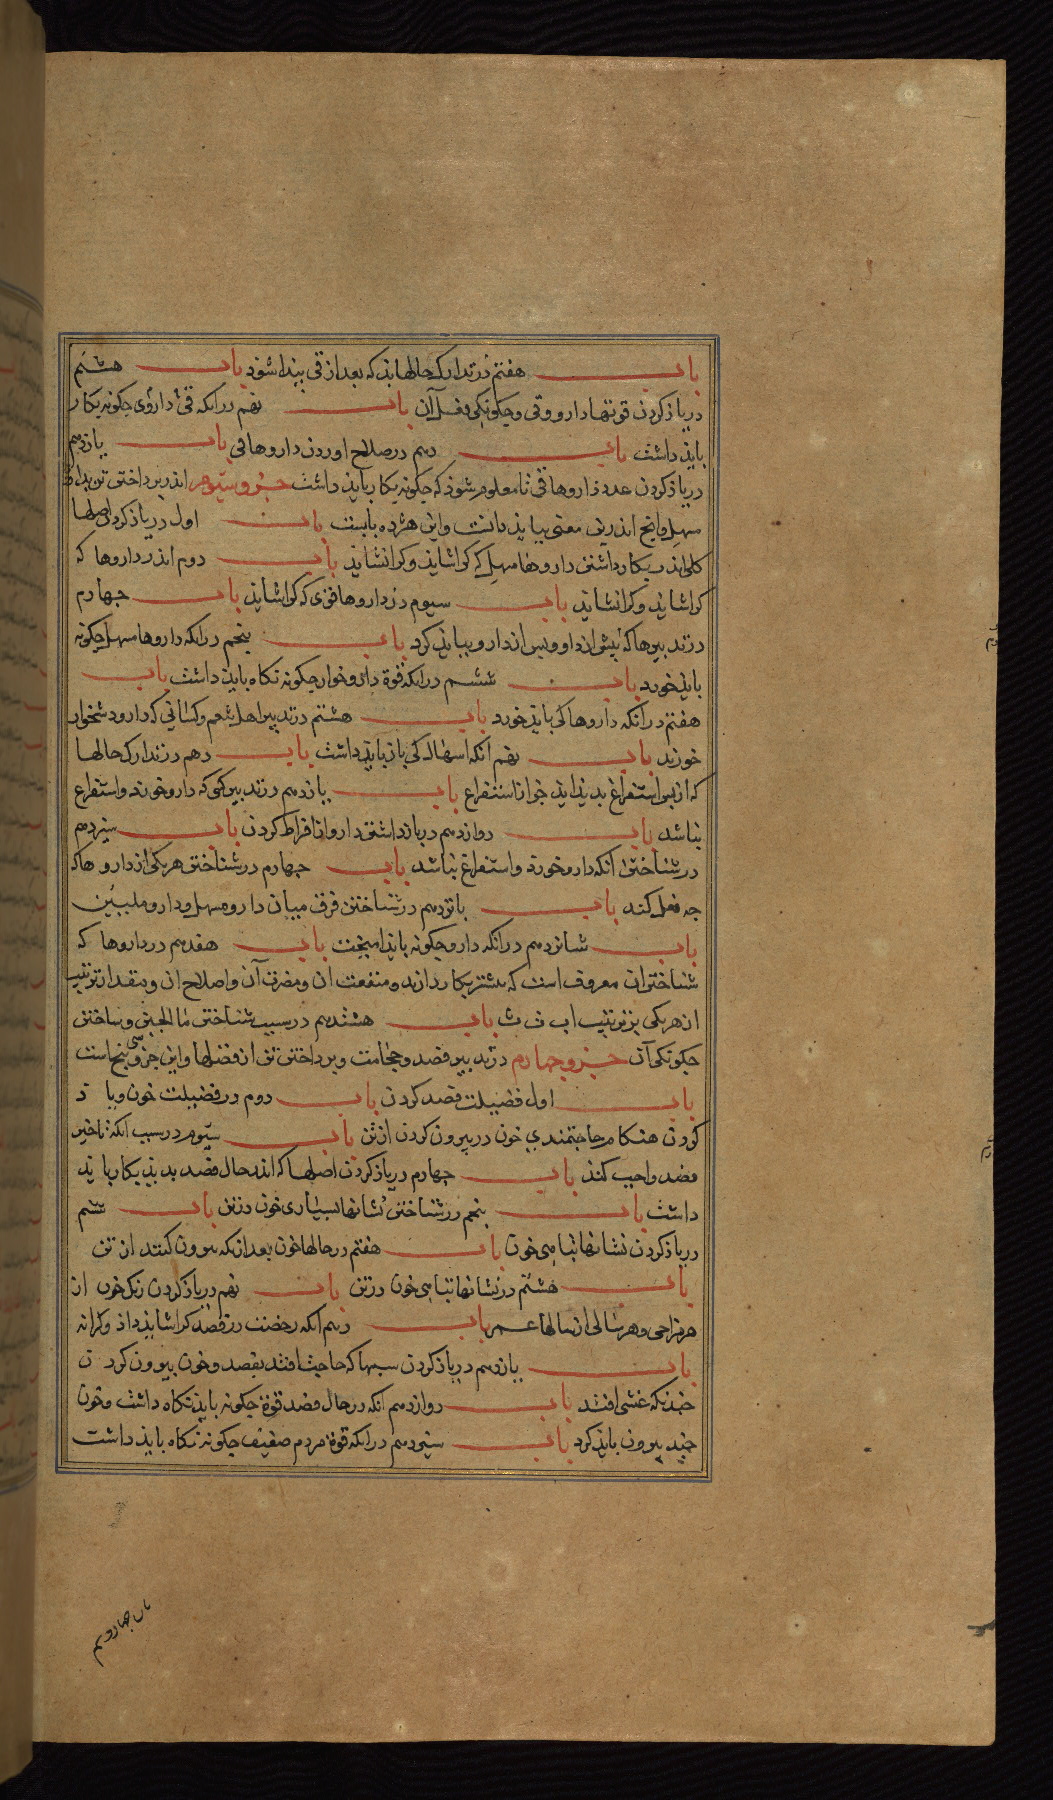 باب هفتم در تدارک حالها بذ که بعد از قی پیدا شوذ باب هشتم
در یاذ کردن قوتها دارو وقی و چکونکی فعل آن باب نهم در انکه قئ داروی چکونه بکار
بایذ داشت باب دهم در صلاح اوردن داروها قی باب یازدهم
در یاذ کردن عدد داروها قی تا معلوم شوذ که چکونه بکار بایذ داشت جزو سیوم اندر پرداختن تن بداروها
مسهل وانج اندرین معنی ببایذ دانست واین هژده بابست باب اول در یاذ کردن اصلها
کلی اندر بکار داشتن داروها مسهل که کرا شایذ وکرا نشایذ باب دوم اندر داروها که
کرا شایذ وکرا نشایذ باب سیوم در داروها قوی که کرا شایذ باب جهارم
در تدبیرها که بیش از دارو وپس از دارو ببایذ کرد باب پنجم در انکه داروها مسهل چکونه
بایذ خورد باب ششم در انکه قوة دارو خوار چکونه نکاه بایذ داشت باب
هفتم در انکه داروها کی بایذ خورد باب هشتم در تدبیر اهل شعم وکسانی که دارو دشخوار
خورند باب نهم انکه اسهال کی باز بایذ داشت باب دهم در تدارک حالها
که از پس استفراغ بدیذ ایذ جز از استفراغ باب یازدهم در تدبیر کسی که دارو خورد واستفراغ
نباشد باب دوازدهم در باز داشتن دارو از افراط کردن باب سیزدهم
در شناختن انکه دارو خورد واستفراغ نباشد باب جهاردم در شناختن هر یکی از داروها که
جه فعل کند باب پانزدهم در شناختن فرق میان دارو مسهل ودارو ملیین
باب شانزدهم در انکه دارو چکونه بایذ امیخت باب هفدهم در داروها که
شناختن ان معروف است که بیشتر بکار دارند ومنفعت ان ومضرت آن واصلاح ان ومقدار ترتیب
از هر یکی بر ترتیب اب ت ث باب هشتدهم در سبب شناختن ما الجبن وساختن
چکونکی آن جزو چهارم در تدبیر فصد وحجامت وپرداختن تن از فضلها واین جزو سی پنج است
باب اول فضیلت فصد کردن باب دوم در فضیلت خون ویاذ
کردن هنکام حاجتمندی خون در بیرون کردن از تن باب سیوم در سبب انکه تاخیر
فصد واجب کند باب جهارم در یاذ کردن اصلها که اندر حال فصد بدیذ بکار باید
داشت باب پنجم در شناختن نشانها بسیاری خون در تن باب ششم
در یاذ کردن نشانها تباهی خون باب هفتم در حالها خون بعد از انکه بیرون کنند از تن
باب هشتم در نشانها تباهی خون در تن باب نهم در یاذ کردن رنک خون از
هر مزاجی وهر سالی از سالها عمر باب دهم انکه رخصت در فصد کرا شایذ داذ وکرا نه
باب یازدهم در یاذ کردن سببها که حاجت افتد بفصد وخون بیرون کردن
چندنکه غشی افتد باب دوازدهم انکه در حال فصد قوة چکونه بایذ نکاه داشت وخون
چند بیرون بایذ کرد باب سیزدهم در انکه قوة مردم ضعیف چکونه نکاه بایذ داشت
باب چهاردهم